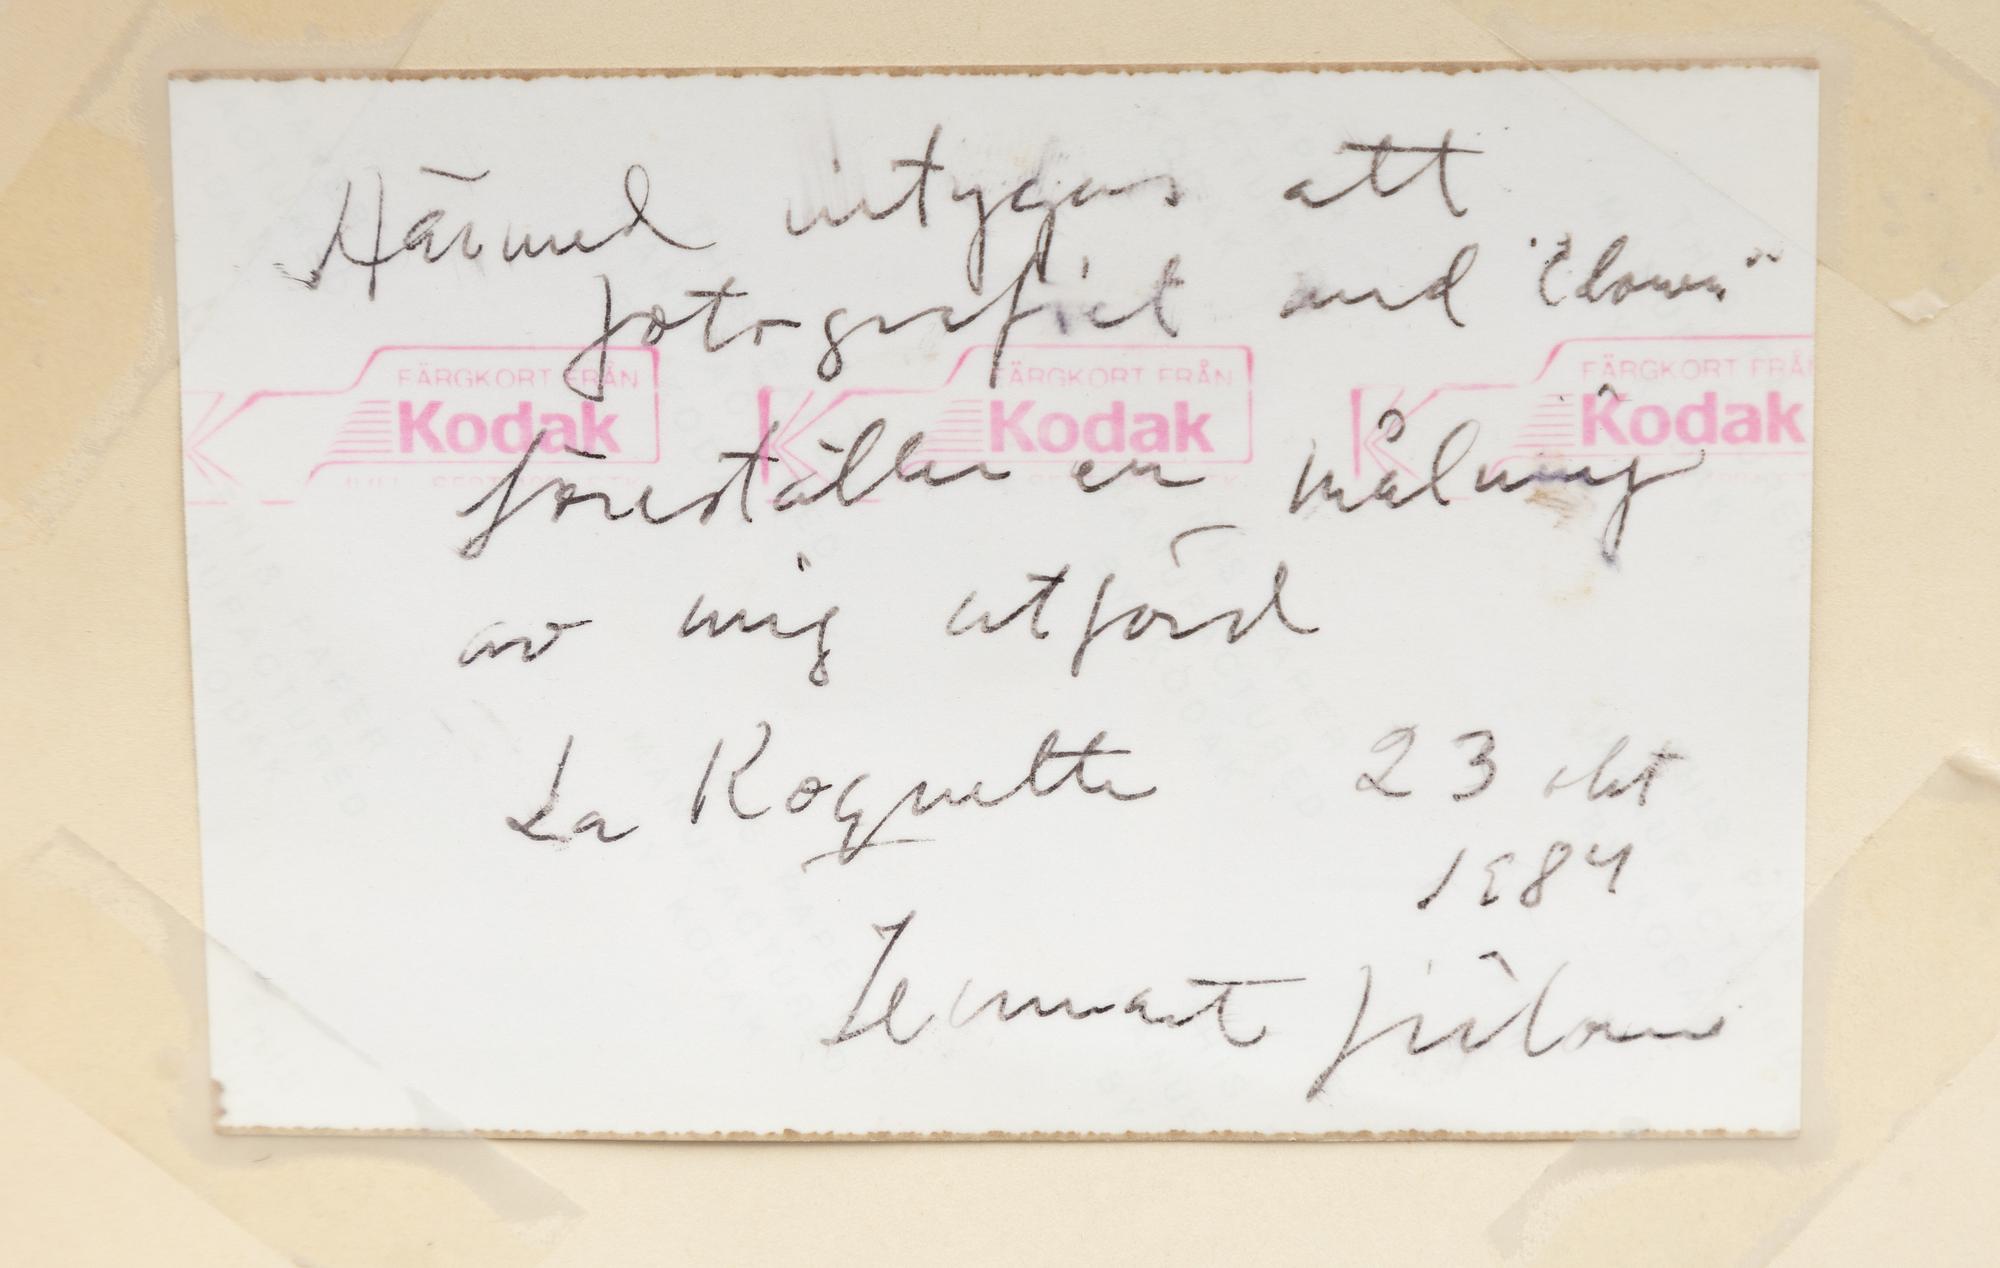 Härmed intygas att
fotografiet med "Clown"
FÄRGKORT FRÅN FÄRGKORT FRÅN FÄRGKORT FRÅN
Kodak Kodak Kodak
föreställer en målning
av mig utförd
La Roquette 23 okt
1984
Lennart Jirlow